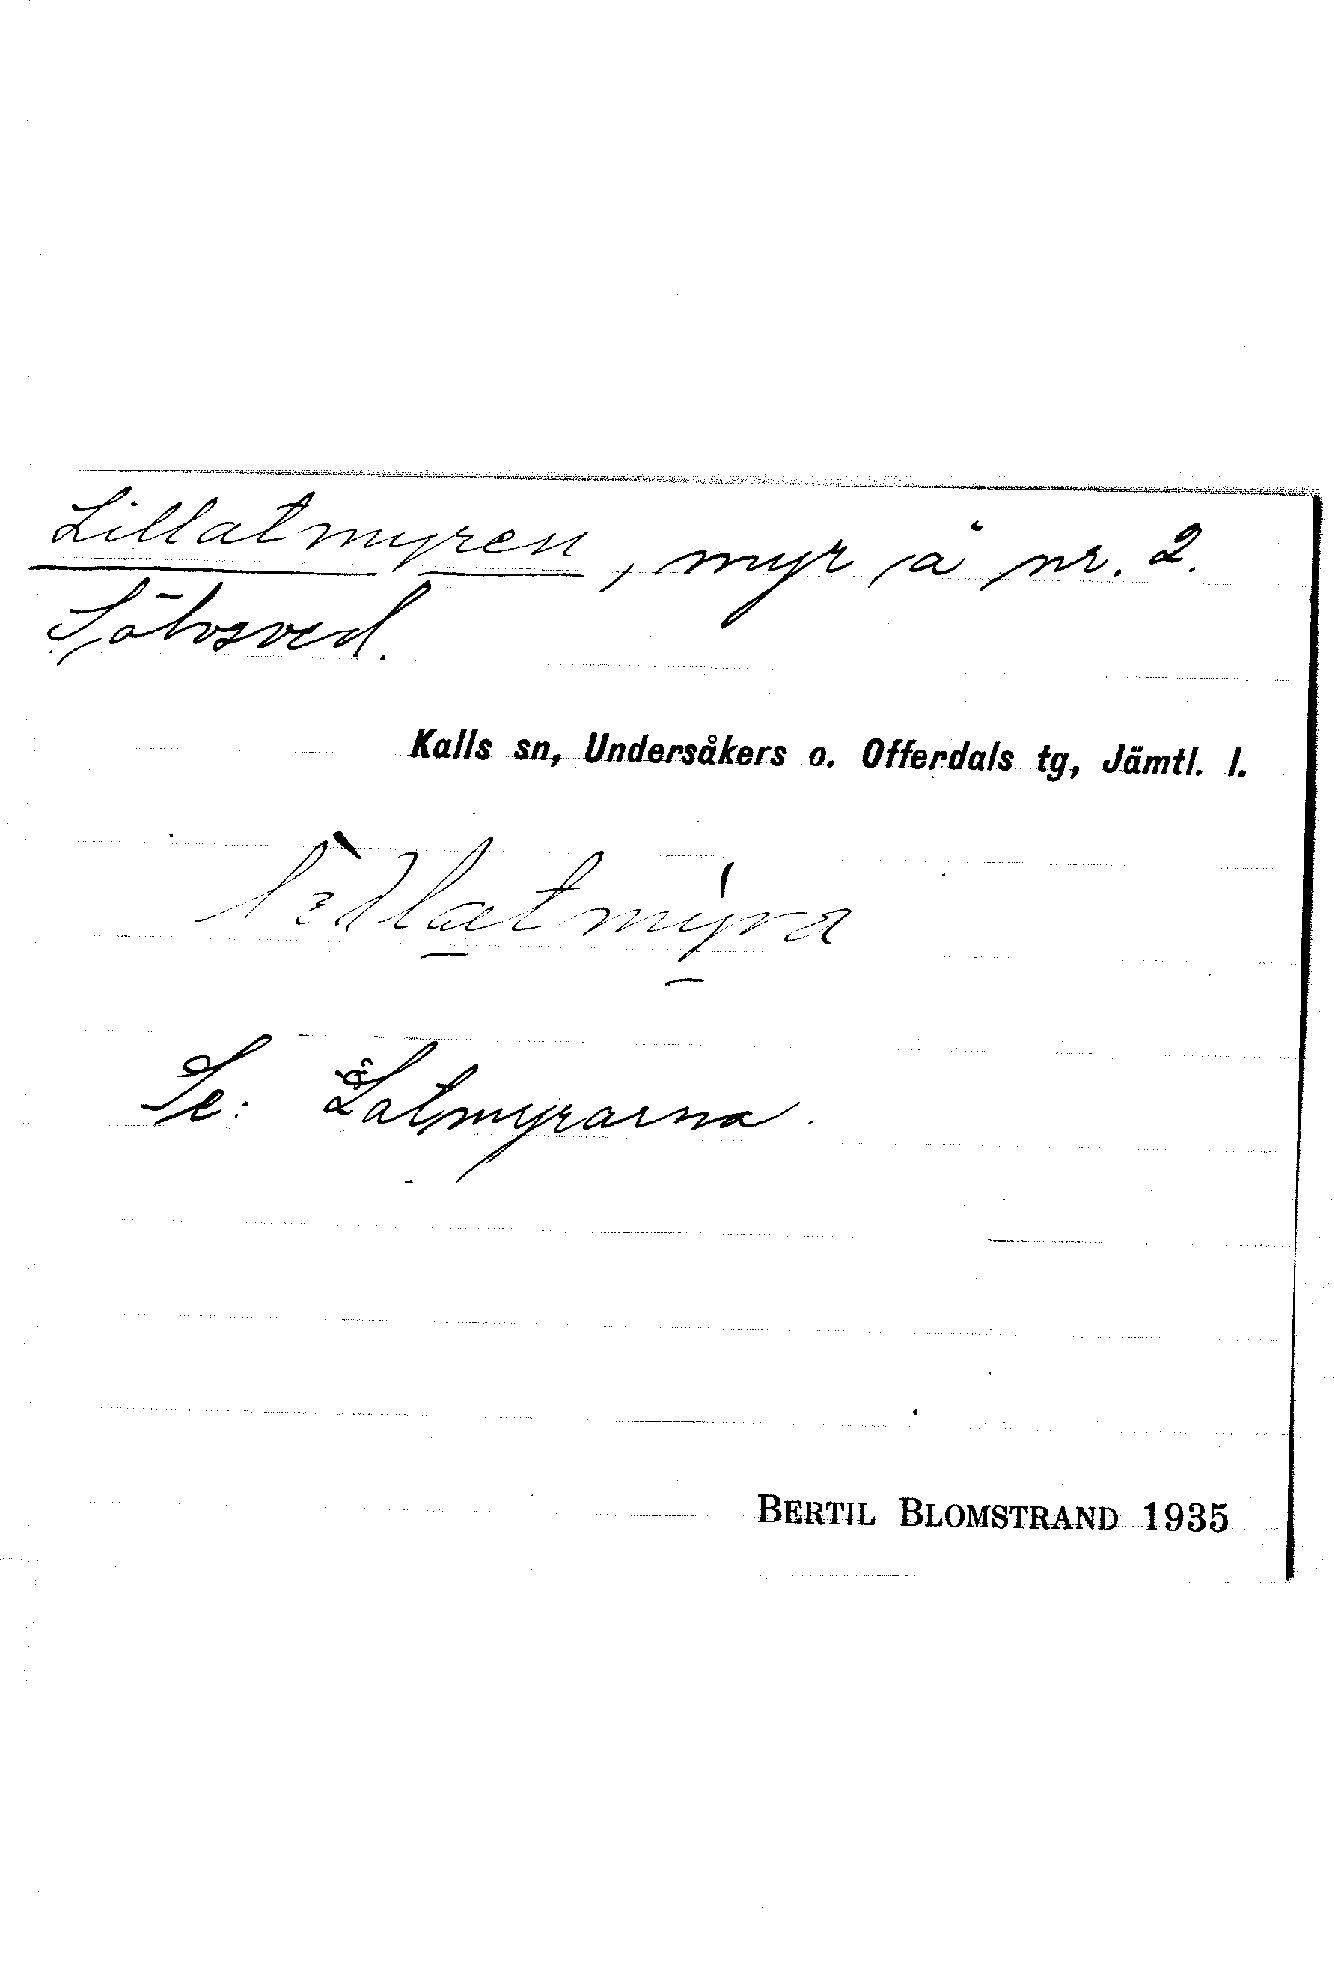 Lillatmyren, myr å nr. 2.
Sölvsved.
Kalls sn, Undersåkers o. Offerdals tg, Jämtl. l.
Se: Latmyrarna.
BERTIL BLOMSTRAND 1935